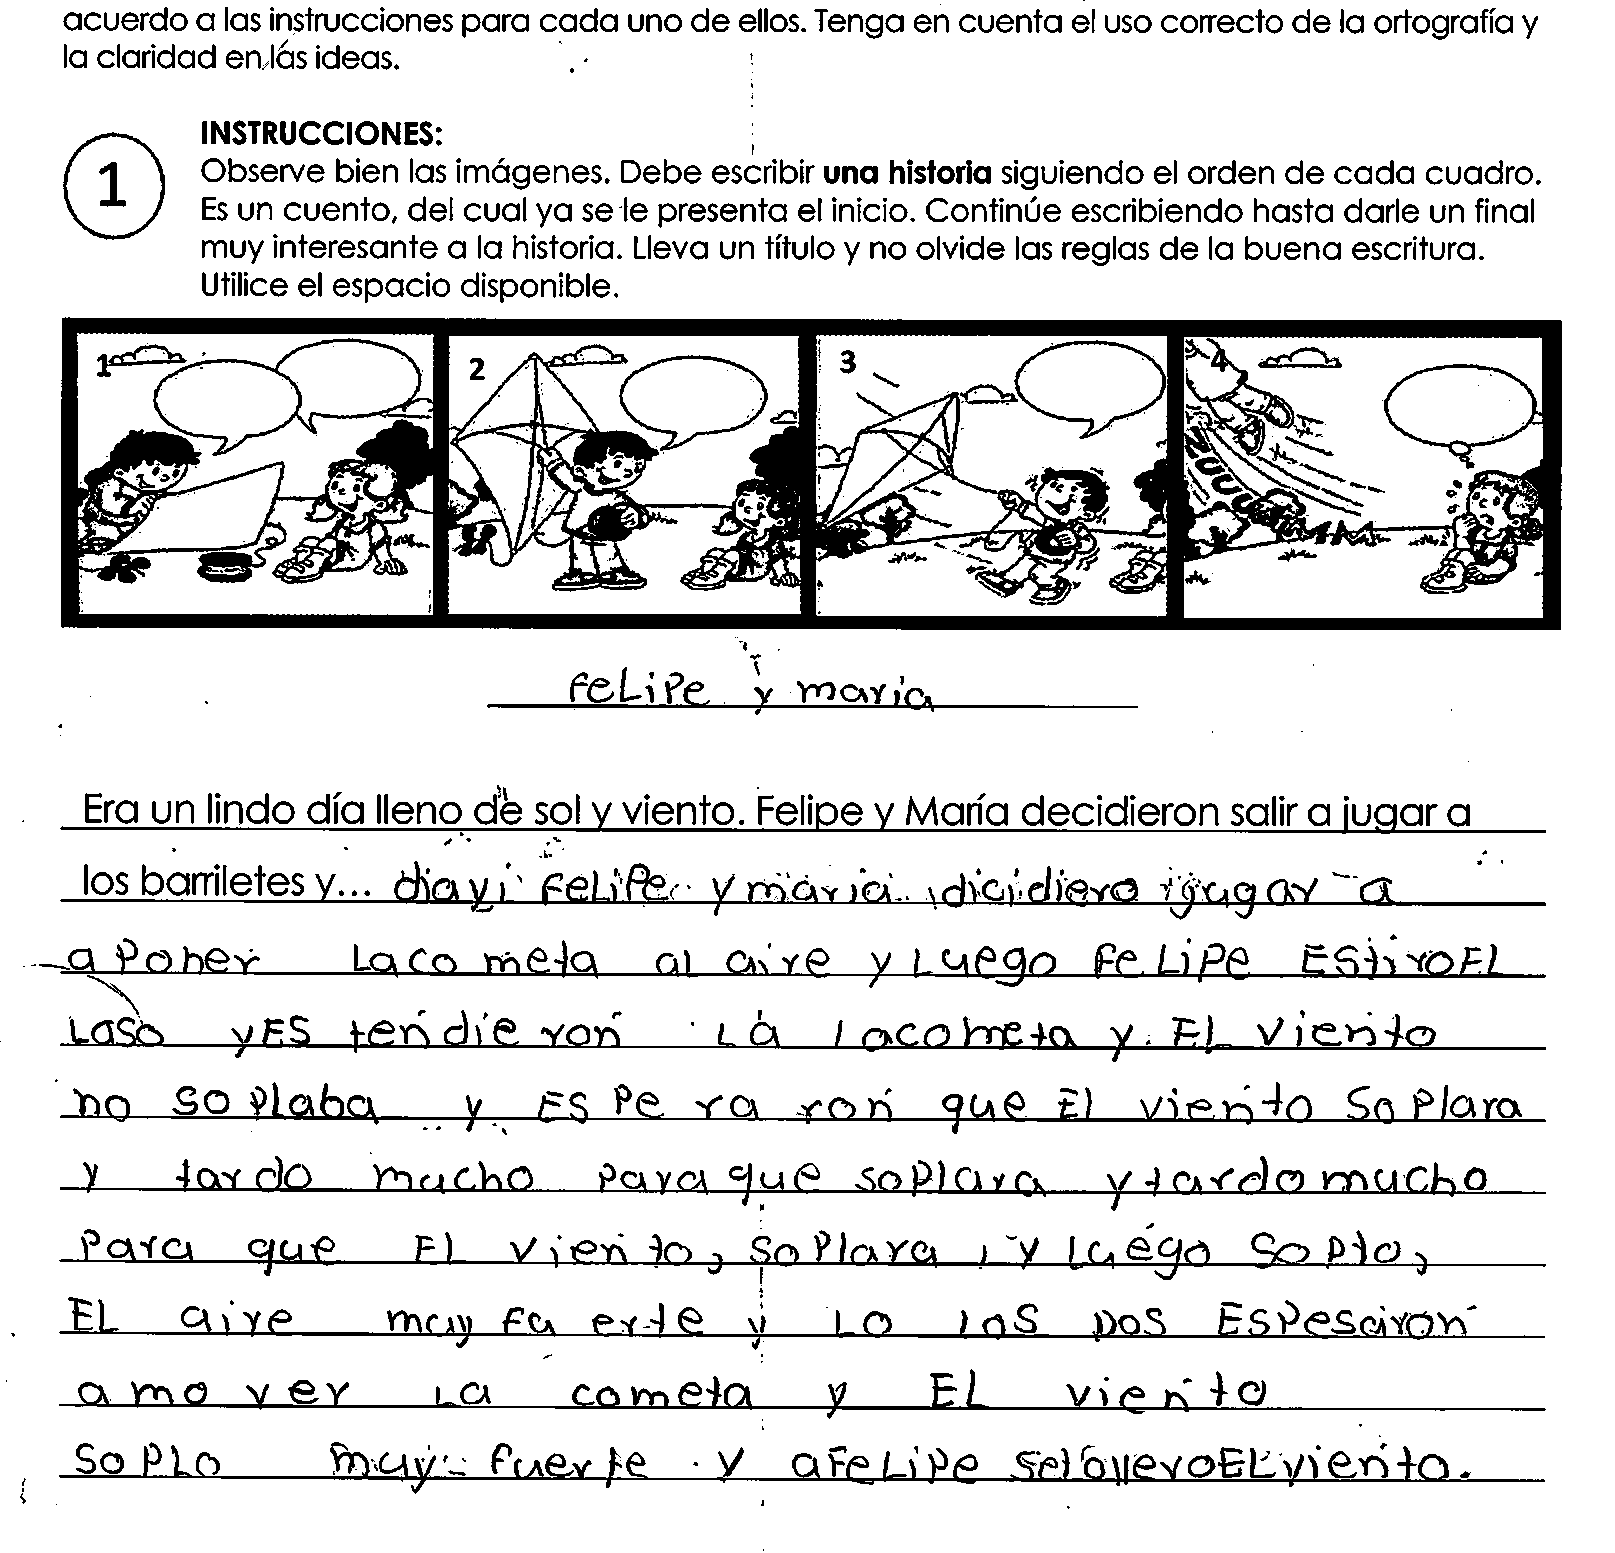 acuerdo a las instrucciones para cada uno de ellos. Tenga en cuenta el uso correcto de la ortografía y
la claridad en las ideas.
1
INSTRUCCIONES:
Observe bien las imágenes. Debe escribir una historia siguiendo el orden de cada cuadro.
Es un cuento, del cual ya se le presenta el inicio. Continúe escribiendo hasta darle un final
muy interesante a la historia. Lleva un título y no olvide las reglas de la buena escritura.
Utilice el espacio disponible.
1 2 3 4
feLiPe y maria
Era un lindo día lleno de sol y viento. Felipe y María decidieron salir a jugar a
los barriletes y... diayi FeLiPe y maria dicidiero gugar a
a Poner La cometa al aire y Luego FeLiPe EStiroEL
Laso yES tendieron La lacometa y EL viento
no soplaba y ESPeraron que El viento SoPlara
y tardo mucho para que soPlara y tardo mucho
Para que EL viento, soPlara, y Luego SoPlo,
EL aire muy fuerte y LO los DOS ESPesaron
a mover La cometa y EL viento
SoPLo muy fuerte y aFeLiPe SelollevoELviento.